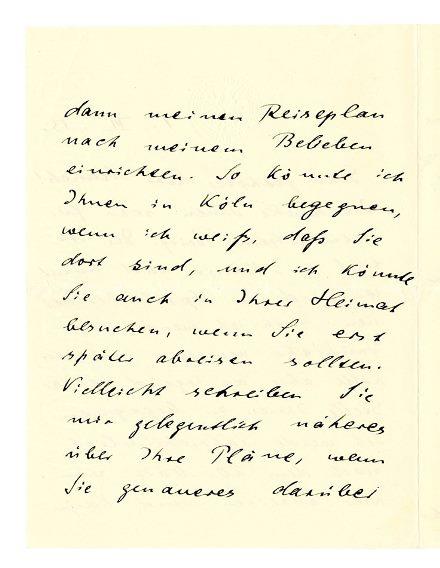 dann meinen Reiseplan
nach meinem Belieben
einrichten. So könnte ich
Ihnen in Köln begegnen,
wenn ich weiß, daß Sie
dort sind, und ich könnte
Sie auch in Ihrer Heimat
besuchen, wenn Sie erst
später abreisen sollten.
Vielleicht schreiben Sie
mir gelegentlich näheres
über Ihre Pläne, wenn
Sie genaueres darüber